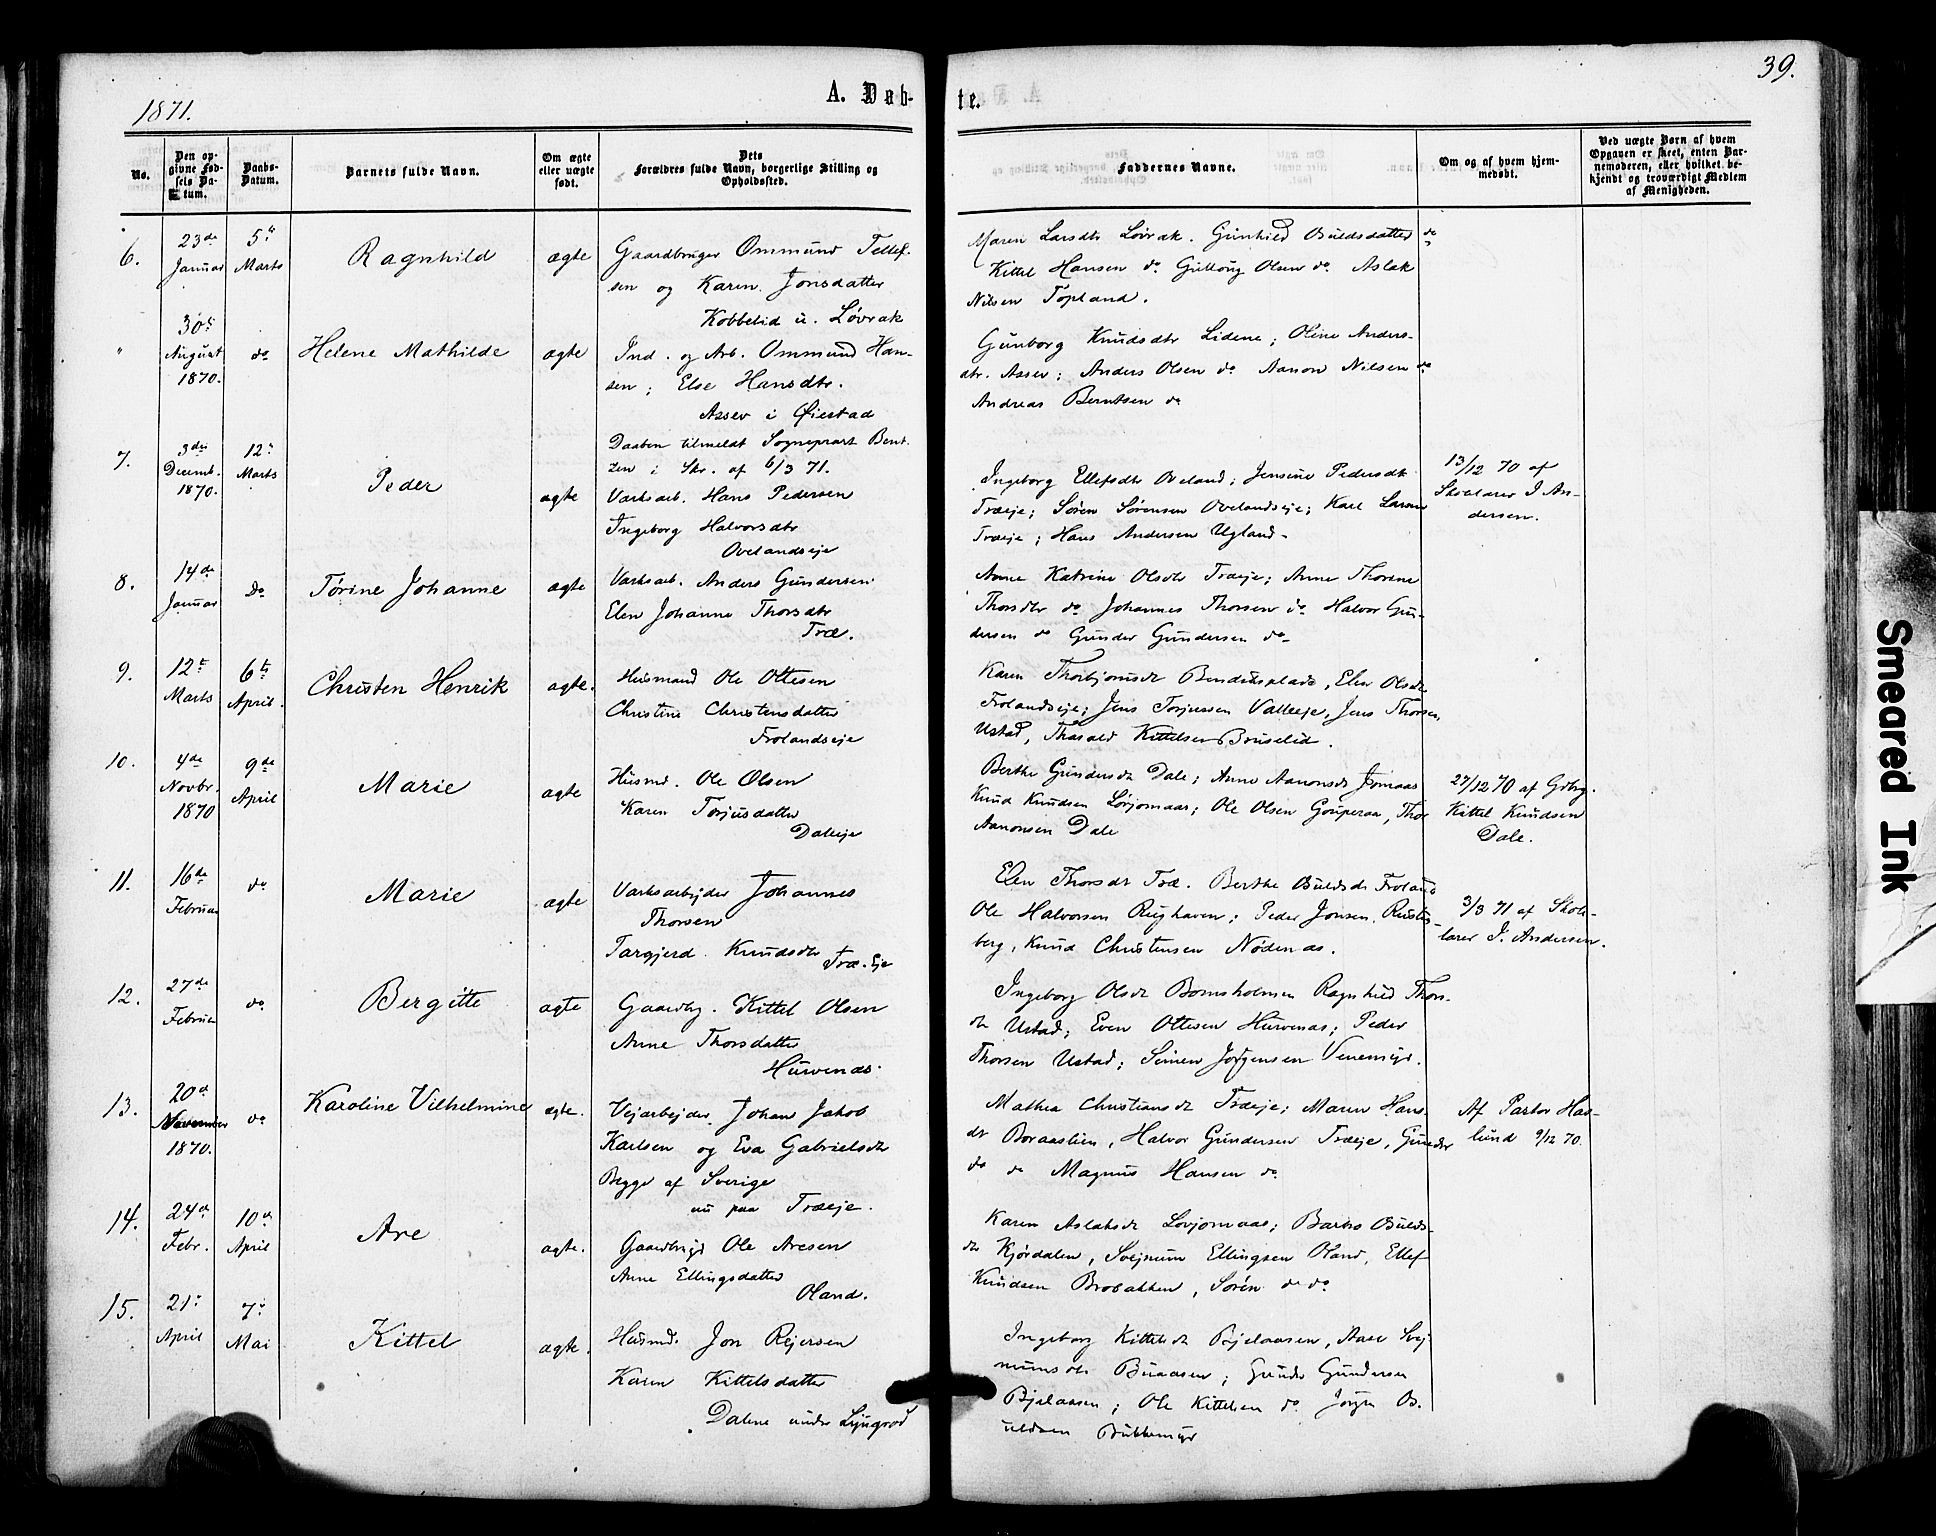 1871.
A. Døb-
te.
39.
No.
Den op-
givne Fød-
sels Da-
tum.
Daabs-
Datum.
Barnets fulde Navn.
Om ægte
eller uægte
født.
Dets
Forældres fulde Navn, borgerlige Stilling og
Opholdssted.
Faddernes Navne.
Om og af hvem hjem-
medøbt.
Ved uægte Børn af hvem
Opgaven er skeet, enten Bar-
nemoderen, eller hvilket be-
kjendt og troværdigt Medlem
af Menigheden.
6.
23de
Januar
5te
Marts
Ragnhild
ægte
Gaardbruger Ommund Tellef-
sen og Karen Jonsdatter
Kobbelid u. Løvrak
Maren Larsdtr Løvrak. Gunhild Osuldsdatter do
Kittel Hansen do Gullaug Olsen do Aslak
Nilsen Topland.
"
30te
August
1870.
do
Helene Mathilde
ægte
Ind. og Arb. Ommund Han-
sen; Else Hansdtr.
Assev i Øiestad
Daaben tilmeldt Sognepræst Bent-
zen i Skr. af 6/3 71.
Gunborg Knudsdtr Lidene; Oline Anders-
dtr. Assev; Anders Olsen do Aanon Nilsen do
Andreas Berntsen do
7.
3die
Decemb.
1870.
12te
Marts
Peder
ægte
Værksarb. Hans Pedersen
Ingeborg Halvorsdtr
Ovelandseje
Ingeborg Ellefsdtr Oveland; Jensine Pedersdtr
Træeje; Søren Sørensen Ovelandseje; Karl Larsen
Træeje; Hans Andersen Ugland.
13/12 70 af
Skolelærer J An-
dersen.
8.
14de
Januar
Do
Tørine Johanne
ægte
Værksarb. Anders Gundersen
Elen Johanne Thorsdtr
Træ.
Anne Katrine Olsdtr Træeje; Anne Thorine
Thorsdtr do Johannes Thorsen do Halvor Gun-
dersen do Gunder Gundersen do
9.
12te
Marts
6te
April.
Christen Henrik
ægte.
Husmand Ole Ottesen
Christine Christensdatter
Frolandseje
Karen Thorbjørnsdt Bendiksplads, Elen Olsdtr
Frolandseje; Jens Torjussen Valleeje, Jens Thorsen
Ustad, Tharald Kittelsen Bruselid.
10.
4de
Novbr.
1870
9de
April
Marie
ægte
Husmd. Ole Olsen
Karen Torjusdatter
Daleeje
Berthe Gundersdt Dale; Anne Aanonsdt Jomaas
Knud Knudsen Lørjomaas; Ole Olsen Gouperaa, Thor
Aanonsen Dale
27/12 70 af Gdbrg.
Kittel Knudsen
Dale.
11.
16de
Februar
do
Marie
ægte
Værksarbejder Johannes
Thorsen
Targjerd Knudsdtr
Træ. Eje
Elen Thorsdt Træ. Berthe Osuldsdt Froland
Ole Halvorsen Rughaven; Peder Jonsen Rustis-
berg, Knud Christensen Nødenæs.
3/3 71 af Skole-
lærer J. Andersen.
12.
27de
Februar
do
Bergitte
ægte
Gaardbg. Kittel Olsen
Anne Thorsdatter
Hurvenæs.
Ingeborg Olsdt Bomsholmen Ragnhild Thors-
dtr Ustad; Even Ottesen Hurvenæs; Peder
Thorsen Ustad; Simen Jørgensen Venemyr.
13.
20de
November
1870.
do
Karoline Vilhelmine
ægte.
Vejarbejder Johan Jakob
Karlsen og Eva Gabrielsdtr
Begge af Sverige
nu paa Træeje.
Mathea Christiansdt Træeje; Maren Hans-
dtr Boraaslien, Halvor Gundersen Træeje, Gunder
do do Magnus Hansen do
Af Pastor Has-
lund 9/12 70.
14.
24de
Febr.
10de
April
Are
ægte.
Gaardbrgr Ole Aresen
Anne Ellingsdatter
Oland.
Karen Aslaksdt Lørjomaas; Barbro Osulds-
dtr Kjørdalen, Svejnum Ellingsen Oland, Ellef
Knudsen Brobakken, Søren do do
15.
21te
April
7de
Mai
Kittel
ægte.
Husmd. Jon Rejersen
Karen Kittelsdatter
Dalene under Ljøgrod
Ingeborg Kittelsdt Bjelaasen, Aase Svej-
numsdtr Buaasen; Gunder Gundersen
Bjelaasen; Ole Kittelsen do Jørgen Os-
uldsen Bukkemyr
Smeared Ink